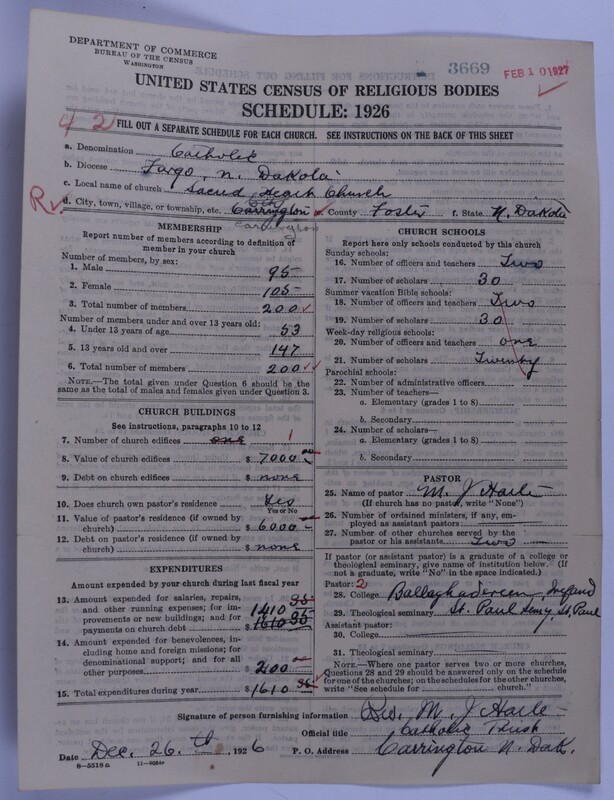 DEPARTMENT OF COMMERCE
BUREAU OF THE CENSUS
WASHINGTON
3669
FEB 10 1927
UNITED STATES CENSUS OF RELIGIOUS BODIES
SCHEDULE: 1926
4 2
FILL OUT A SEPARATE SCHEDULE FOR EACH CHURCH. SEE INSTRUCTIONS ON THE BACK OF THIS SHEET
a. Denomination Catholic
b. Diocese Fargo, N. Dakota
c. Local name of church Sacred Heart Church
R
d. City, town, village, or township, etc. City Carrington e. County Foster f. State N. Dakota
Carrington
MEMBERSHIP
Report number of members according to definition of member in your church
Number of members, by sex:
1. Male 95
2. Female 105
3. Total number of members 200
Number of members under and over 13 years old:
4. Under 13 years of age 53
5. 13 years old and over 147
6. Total number of members 200
NOTE.—The total given under Question 6 should be the same as the total of males and females given under Question 3.
CHURCH BUILDINGS
See instructions, paragraphs 10 to 12
7. Number of church edifices one 1
8. Value of church edifices $ 7000
9. Debt on church edifices $ none
10. Does church own pastor's residence Yes
Yes or No
11. Value of pastor's residence (if owned by church) $ 6000
12. Debt on pastor's residence (if owned by church) $ none
EXPENDITURES
Amount expended by your church during last fiscal year
13. Amount expended for salaries, repairs, and other running expenses; for improvements or new buildings; and for payments on church debt $ 1410 95
1610 95
14. Amount expended for benevolences, including home and foreign missions; for denominational support; and for all other purposes $ 200
15. Total expenditures during year $ 1610 95
CHURCH SCHOOLS
Report here only schools conducted by this church
Sunday schools:
16. Number of officers and teachers Two
17. Number of scholars 30
Summer vacation Bible schools:
18. Number of officers and teachers Two
19. Number of scholars 30
Week-day religious schools:
20. Number of officers and teachers one
21. Number of scholars Twenty
Parochial schools:
22. Number of administrative officers
23. Number of teachers—
a. Elementary (grades 1 to 8)
b. Secondary
24. Number of scholars—
a. Elementary (grades 1 to 8)
b. Secondary
PASTOR
25. Name of pastor M. J. Haile
(If church has no pastor, write "None")
26. Number of ordained ministers, if any, employed as assistant pastors
27. Number of other churches served by the pastor or his assistants Two
If pastor (or assistant pastor) is a graduate of a college or theological seminary, give name of institution below. (If not a graduate, write "No" in the space indicated.)
Pastor: 2
28. College Ballaghadereen, Ireland
29. Theological seminary St. Paul Semy, St. Paul
Assistant pastor:
30. College
31. Theological seminary
NOTE.—Where one pastor serves two or more churches, Questions 28 and 29 should be answered only on the schedule for one of the churches; on the schedules for the other churches, write "See schedule for church."
Signature of person furnishing information Rev. M. J. Haile
Official title Catholic Priest
Date Dec. 26.th, 1926 P. O. Address Carrington N. Dak.
8—5518a